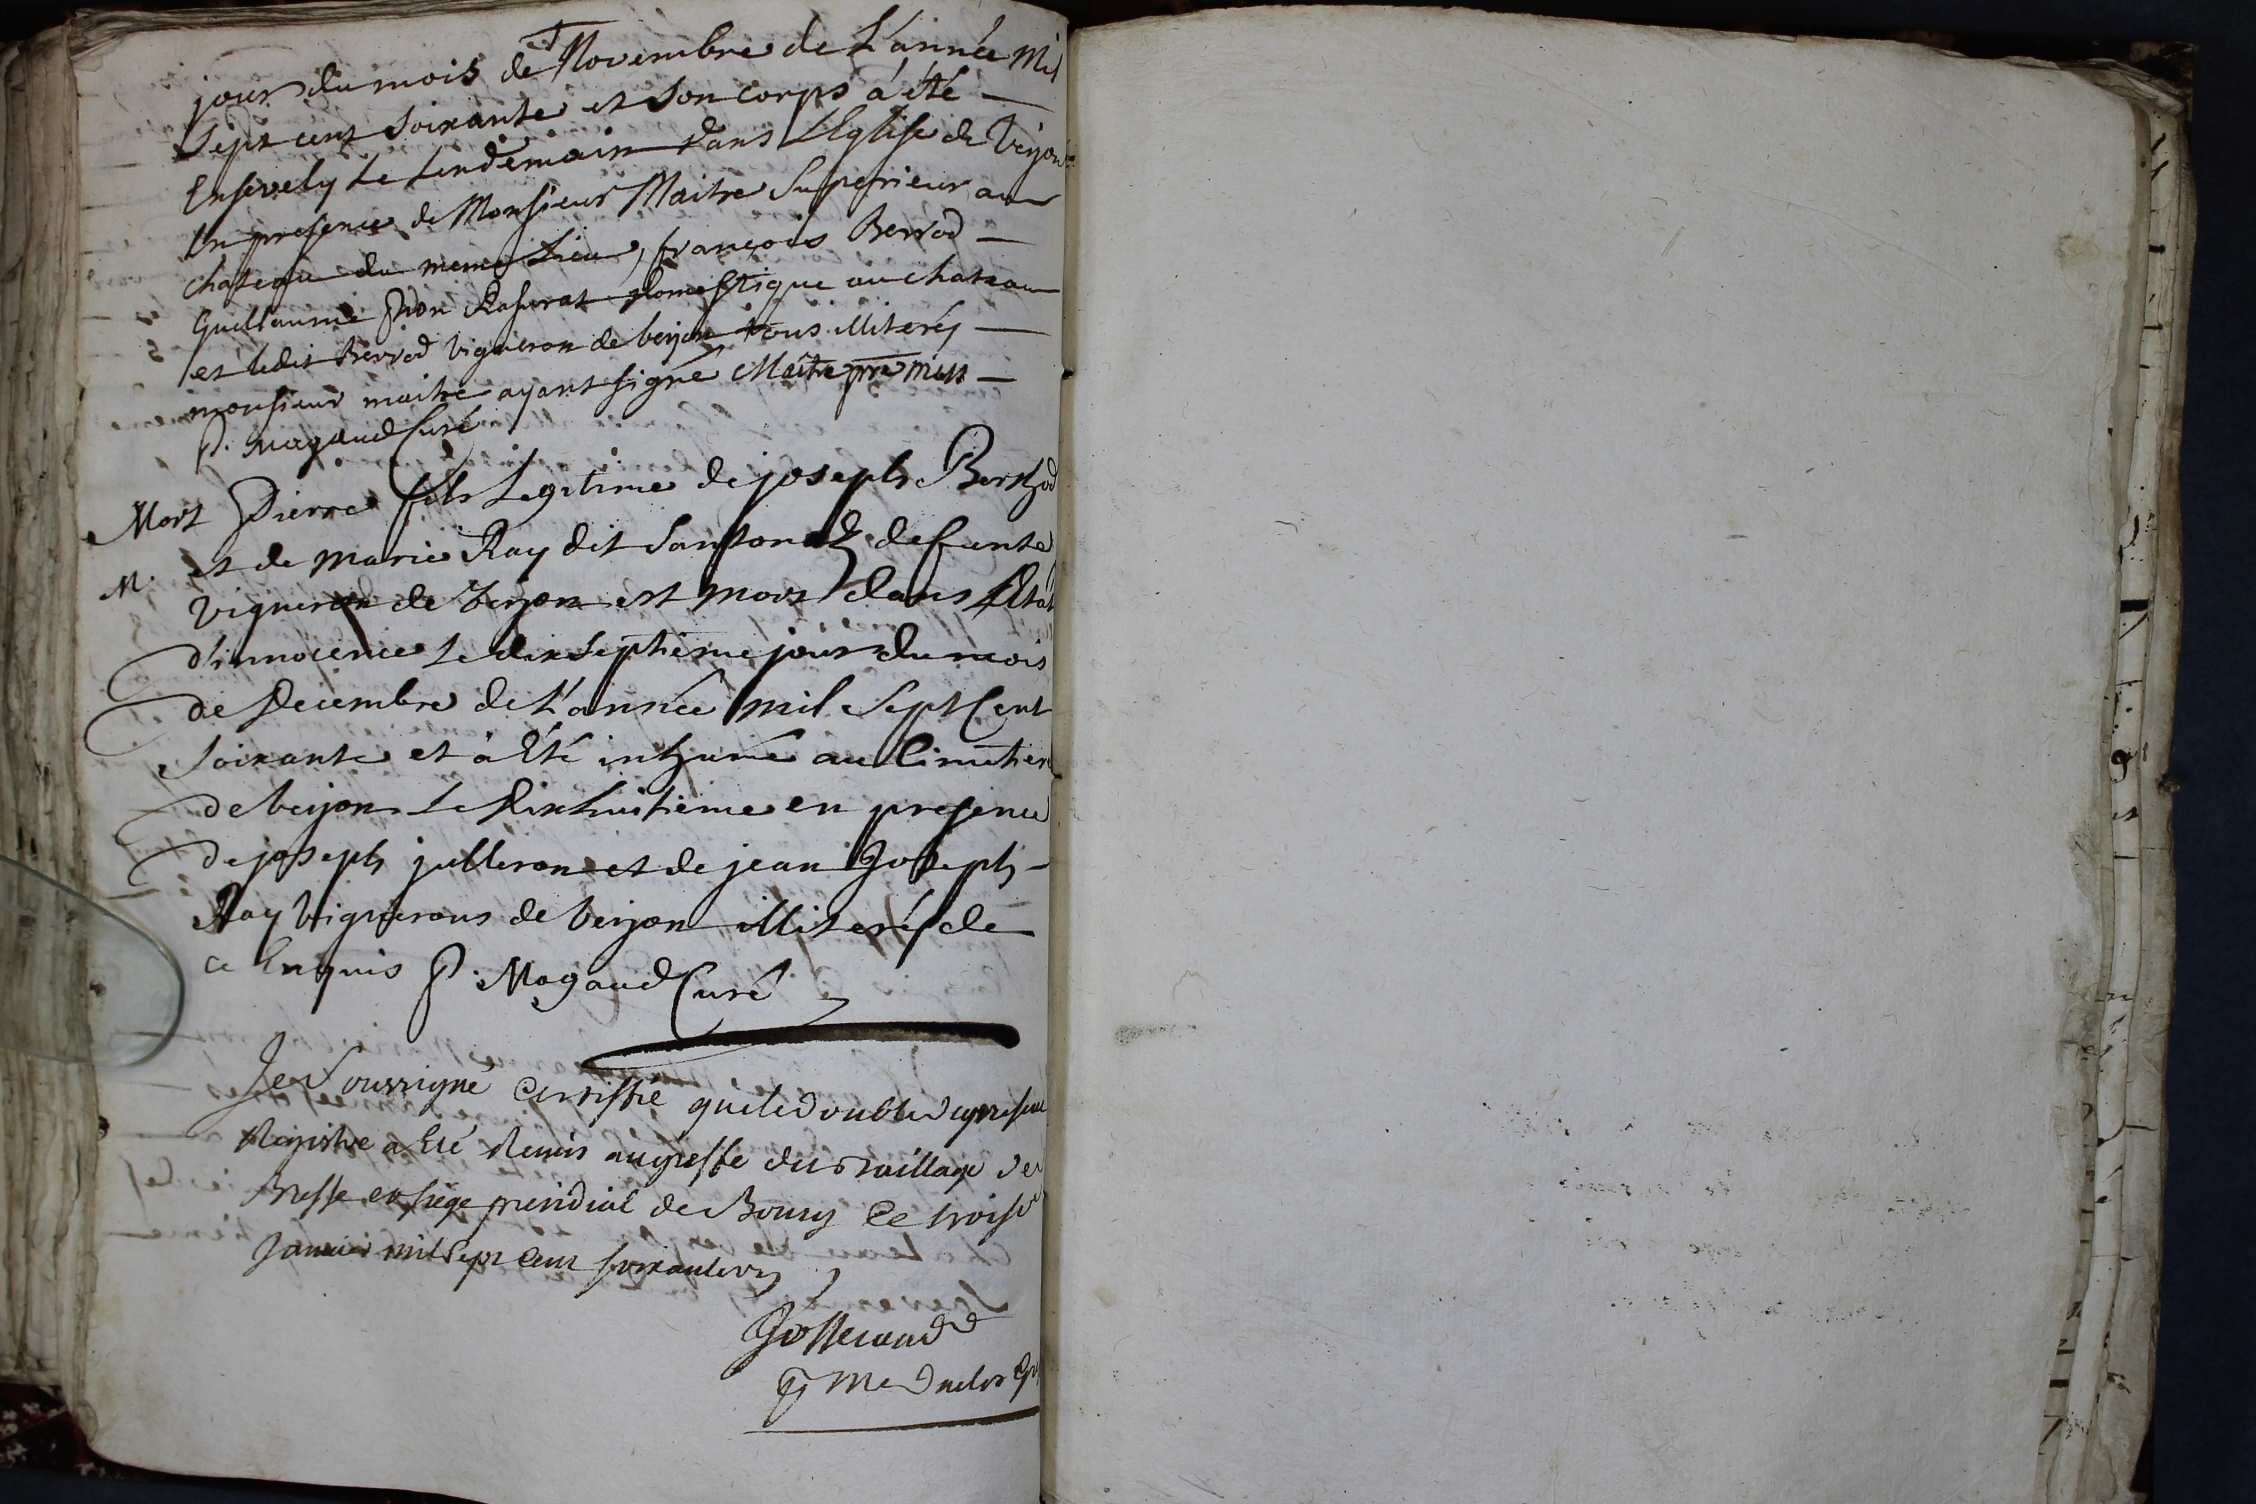 jour du mois de Novembre de L'année Mil
Sept cent Soixante et son corps à été
Ensevely Le Lendemain dans L'Eglise de Verjon
En presence de Monsieur Maitre Superieur au
chateau du meme Lieu, françois Berrod
Guillaume domestique au chateau
et ledit Berrod vigneron de verjon tous illiterés
monsieur maitre ayant signé Maitre pre miss
P. Magaud Curé
Mort Pierre fils Legitime de joseph Berthod
et de marie Ray dit defunte
M.
vigneron de Verjon est mort dans L'Etat
d'innocence Le dix septieme jour du mois
de Decembre de L'année mil Sept Cent
Soixante et à Eté inhumé au Cimetiere
de verjon Le Dix huitieme en presence
de joseph julleron et de jean Joseph
Ray Vignerons de verjon illiterés de
ce Enquis P. Magaud Curé
Je Soussigné Certiffie que le double du present
Registre a Eté Remis au greffe du Baillage de
Bresse et siege presidial de Bourg Ce trois
Janvier mil Sept Cent soixante un
Josserand